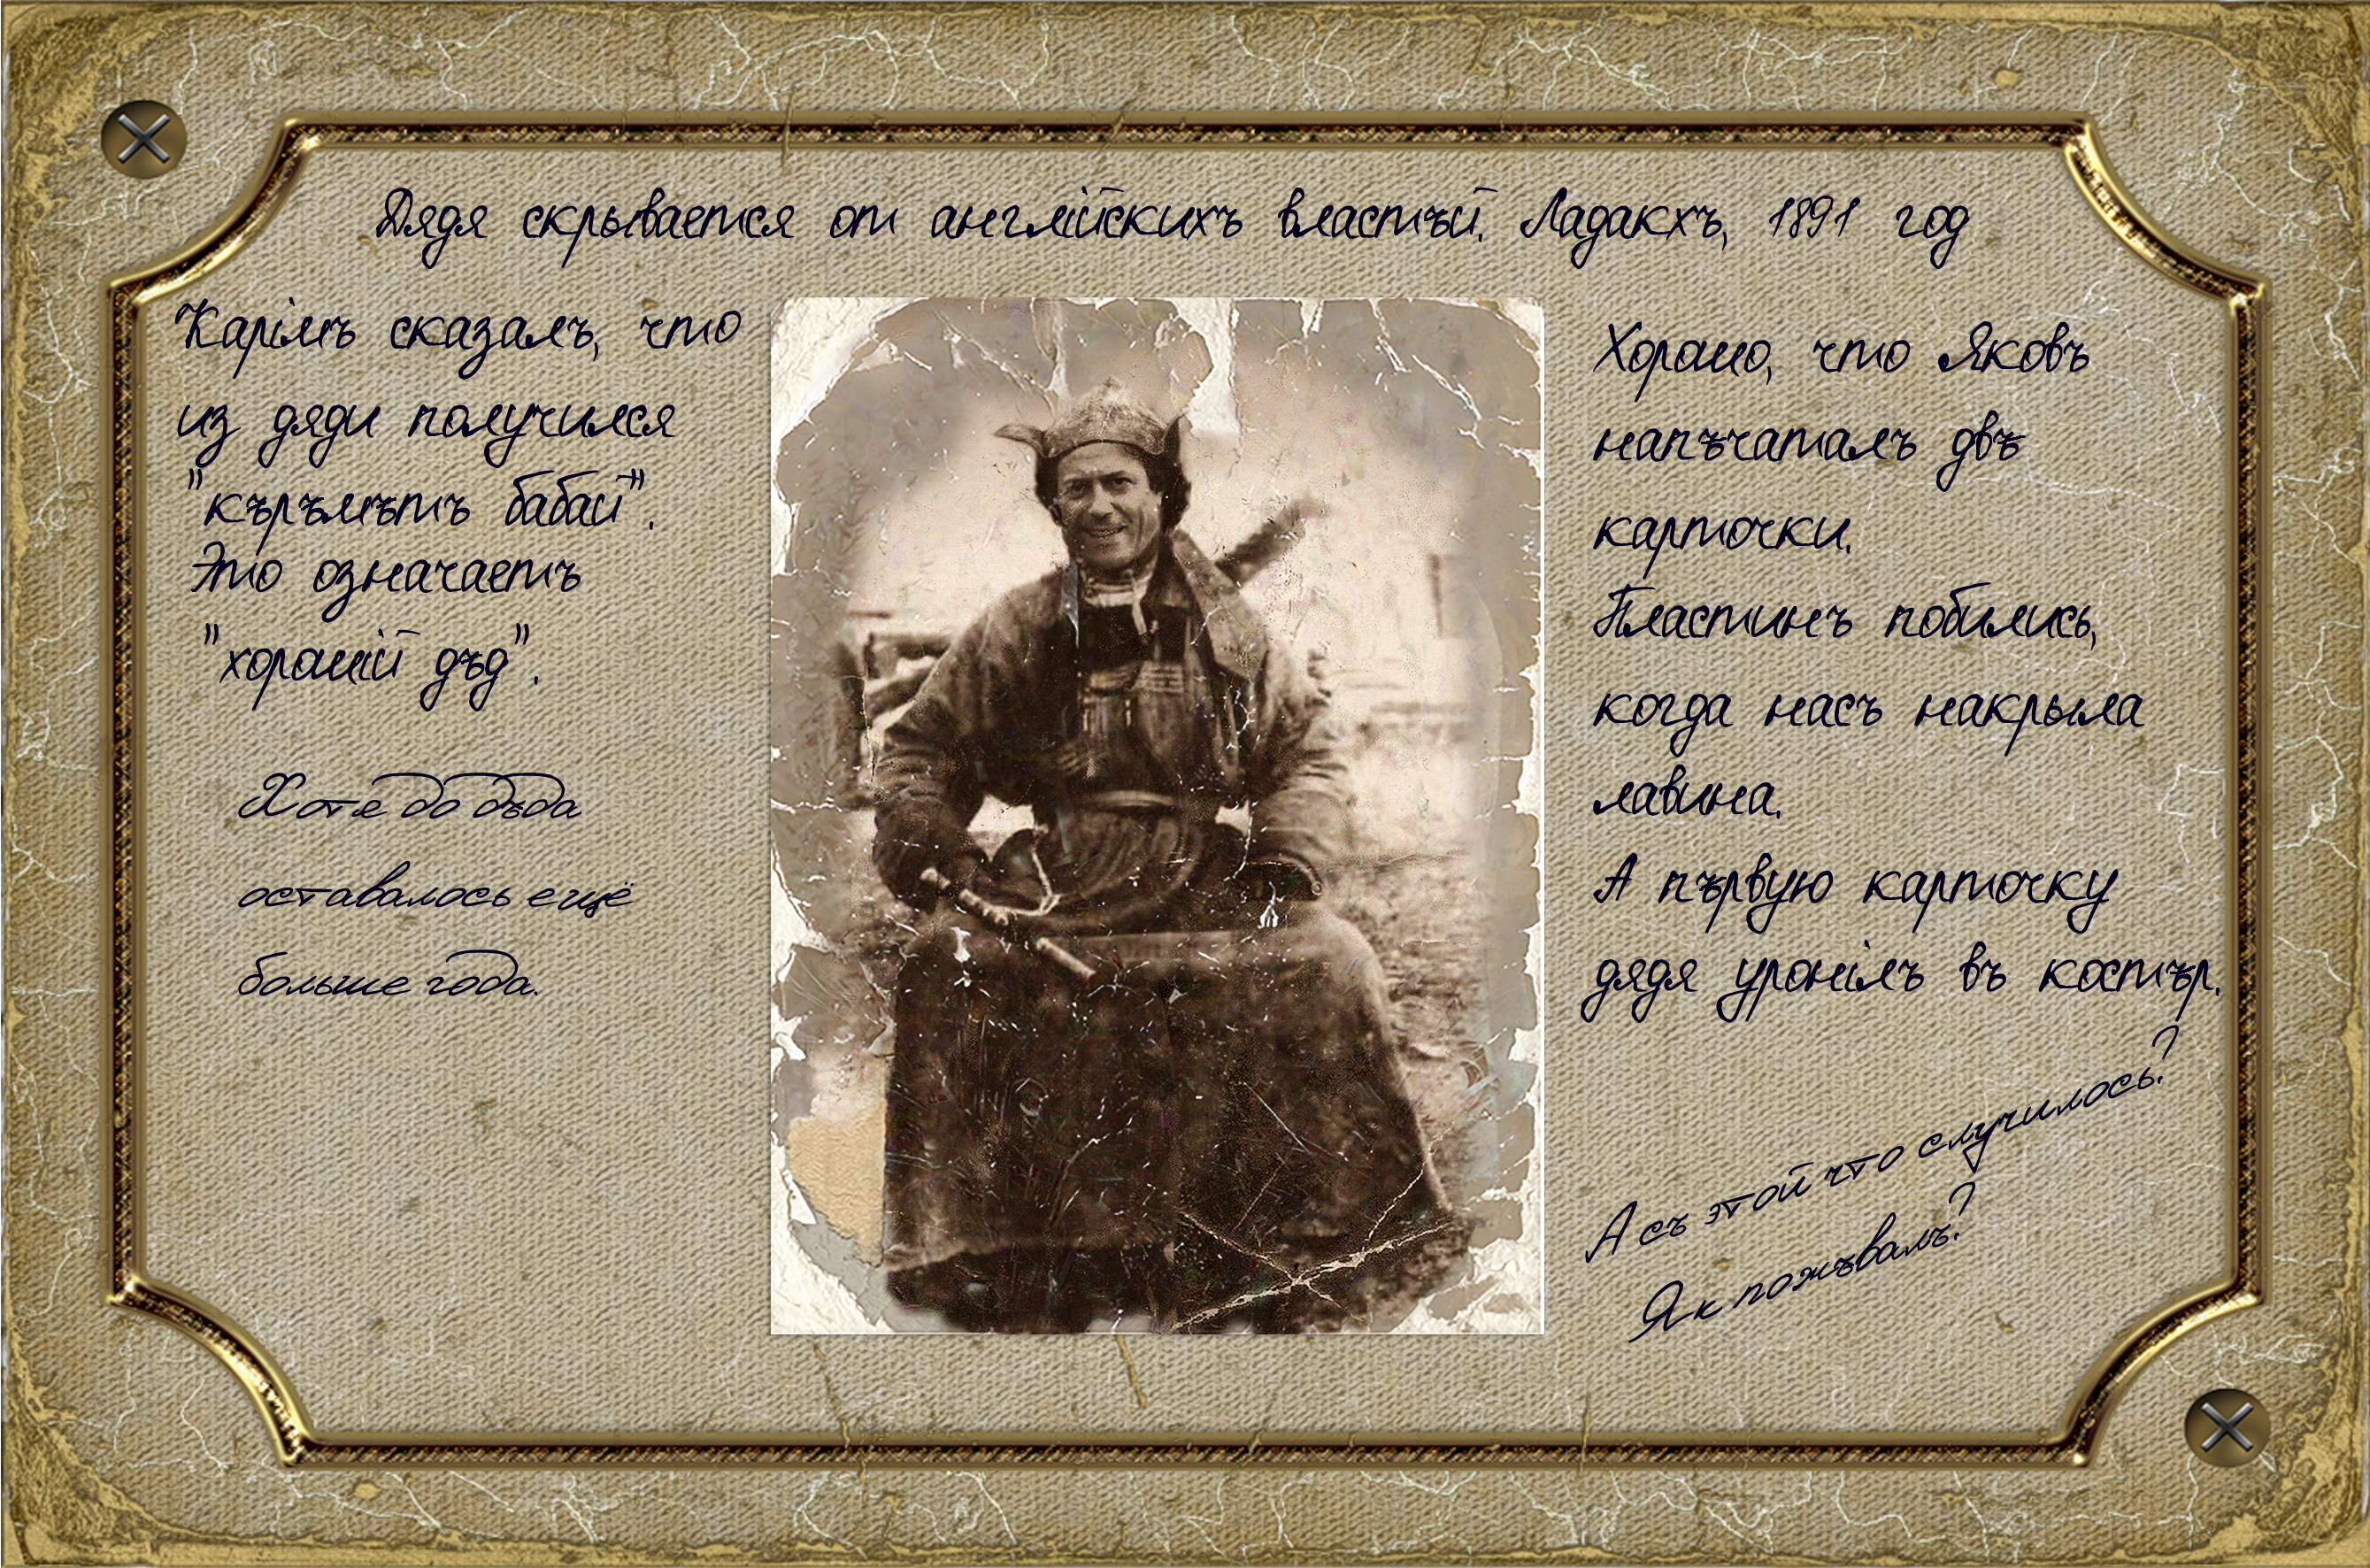 Дядя скрывается от англійскихъ властѣй. Ладакхъ, 1891 год
Карімъ сказалъ, что
из дяди получился
"кѣрѣмѣтъ бабай".
Это означаетъ
"хорошій дѣд".
Хотя до дѣда
оставалось ещё
больше года.
Хорошо, что Яковъ
напѣчаталъ двѣ
карточки.
Пластинъ побились,
когда насъ накрыла
лавина.
А пѣрвую карточку
дядя уронілъ въ костѣр.
А съ этой что случилось?
Як пожѣвалъ?